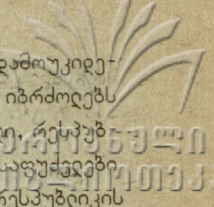 დამოუკიდე-
იბრძოლებს
ი, რესპუბ-
საფუძვლები
რესპუბლიკის